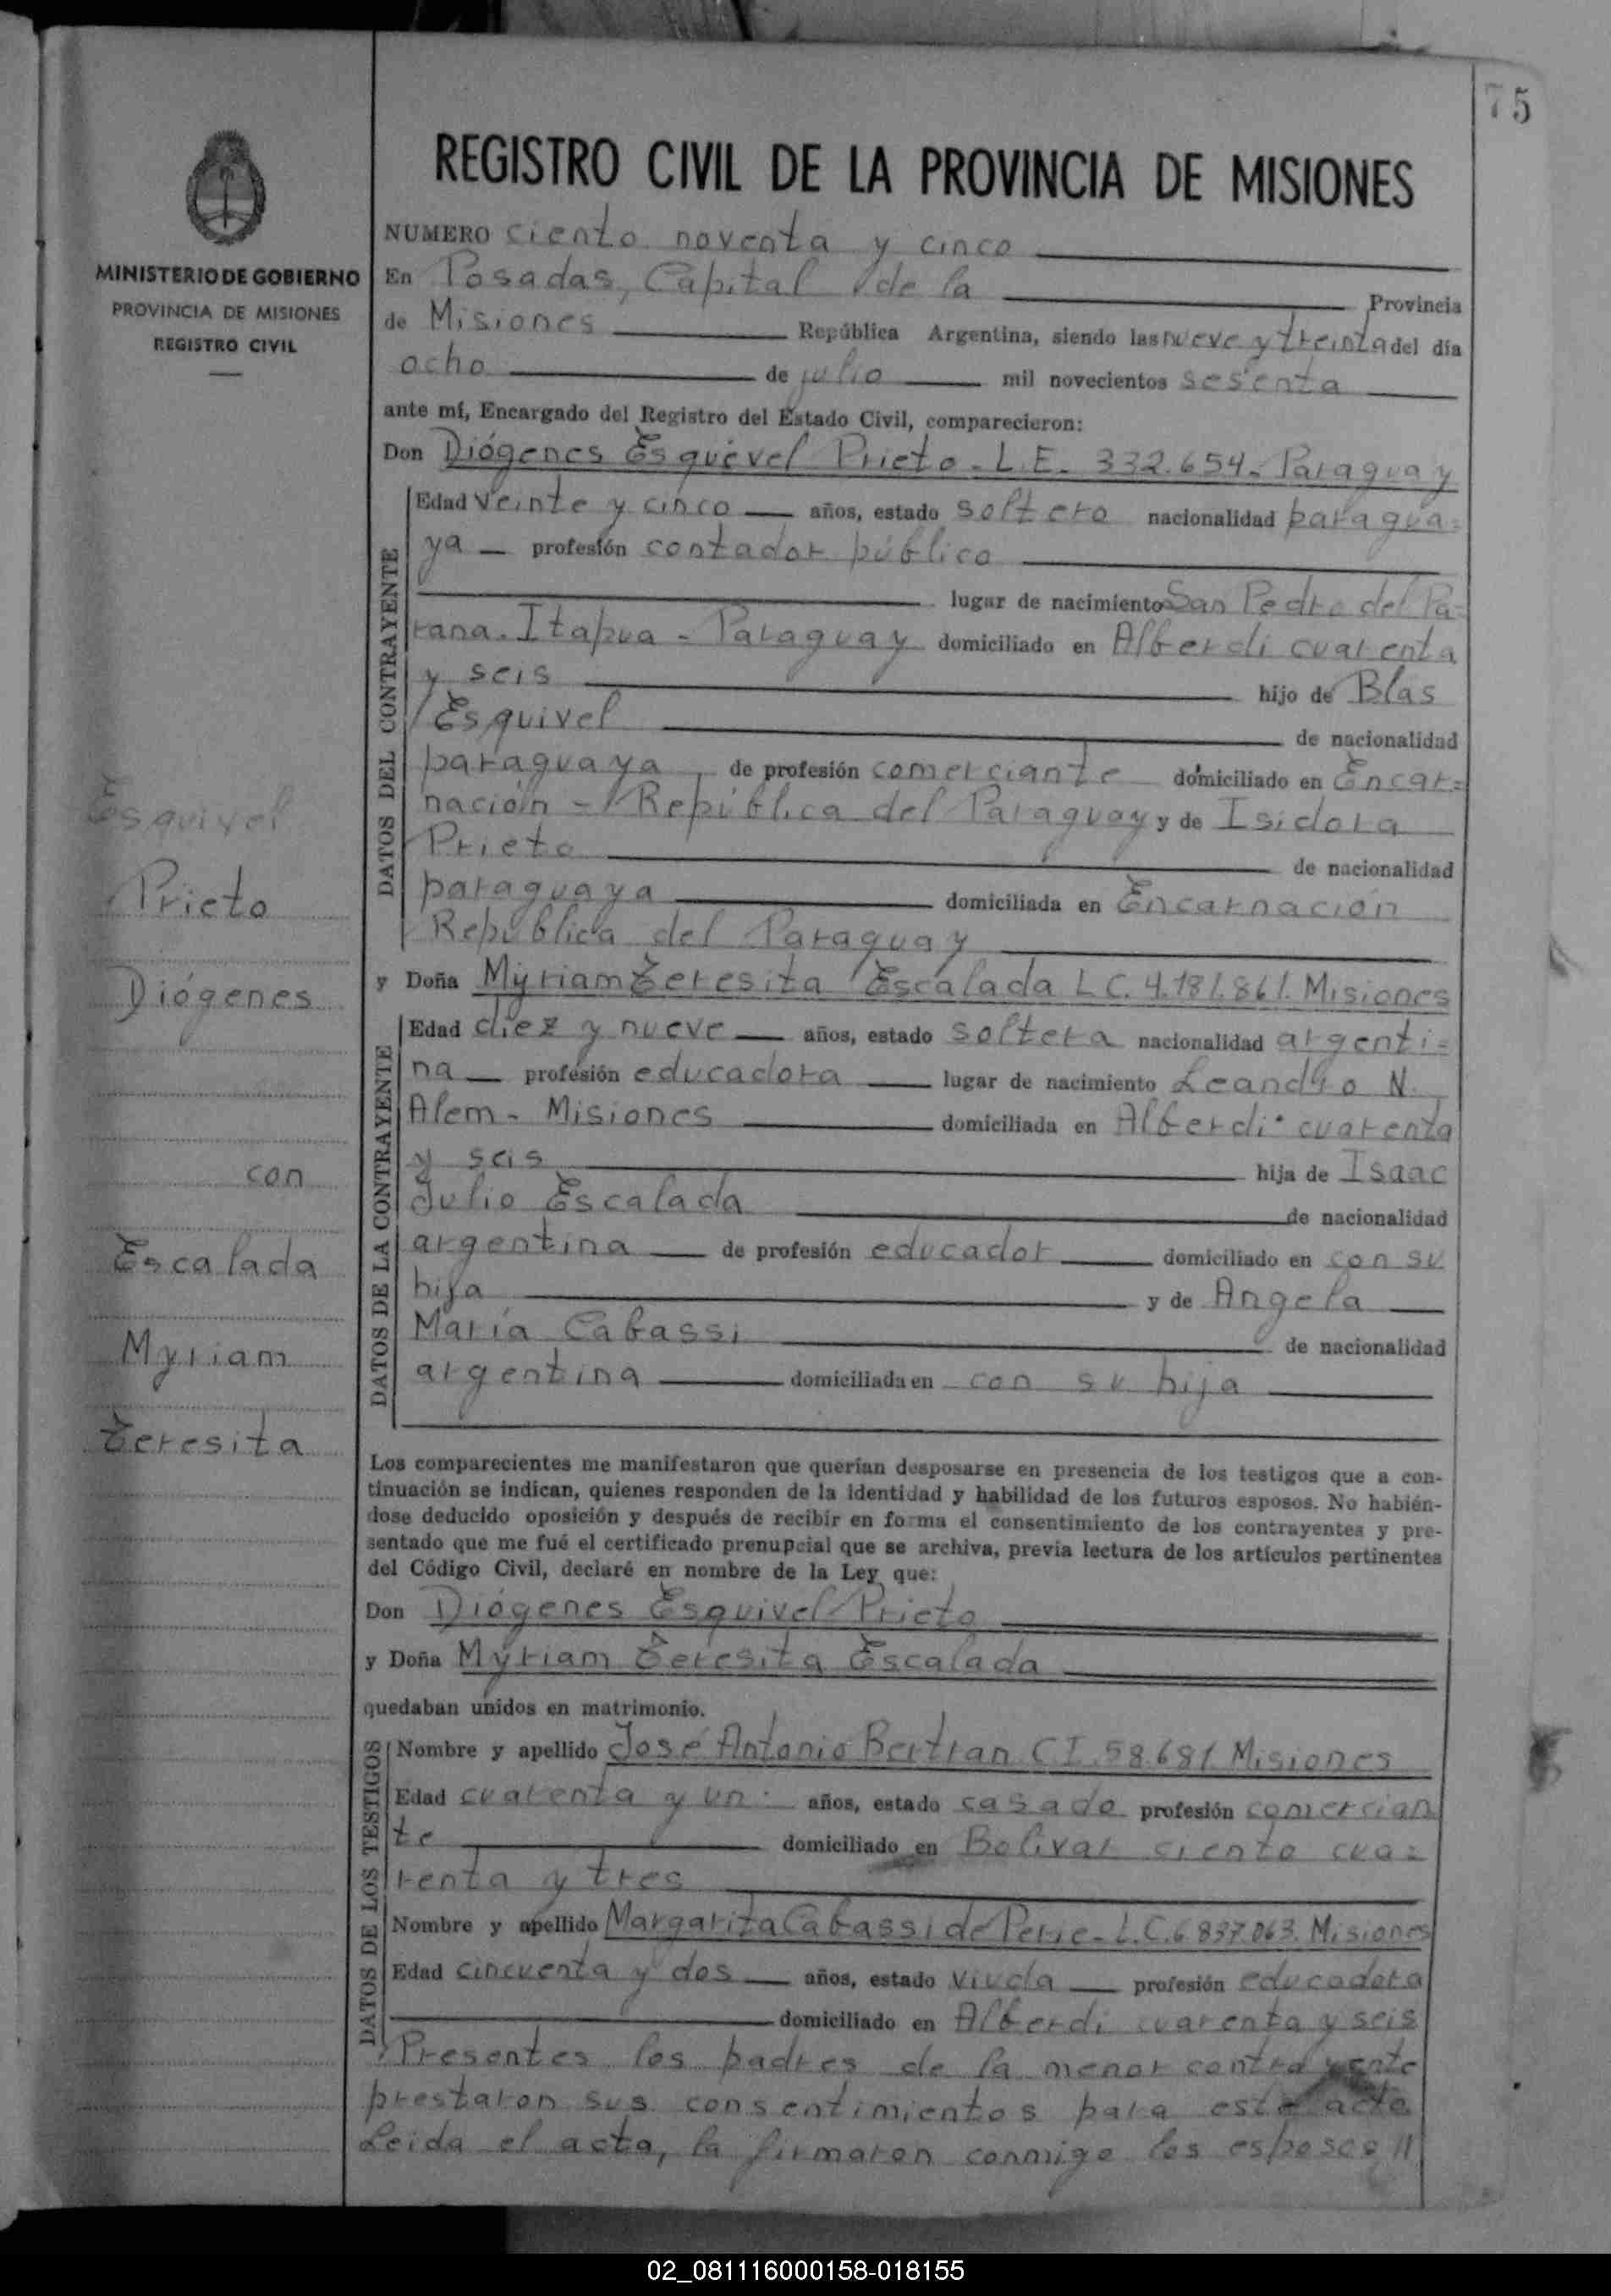 75
REGISTRO CIVIL DE LA PROVINCIA DE MISIONES
MINISTERIO DE GOBIERNO
PROVINCIA DE MISIONES
REGISTRO CIVIL
NUMERO ciento noventa y cinco
En Posadas, Capital de la Provincia
de Misiones República Argentina, siendo las nueve y treinta del día
ocho de julio mil novecientos sesenta
ante mí, Encargado del Registro del Estado Civil, comparecieron:
Don Diógenes Esquivel Prieto - L.E. 332.654 - Paraguay
DATOS DEL CONTRAYENTE
Edad veinte y cinco años, estado soltero nacionalidad paragua=
ya profesión contador público
lugar de nacimiento San Pedro del Pa=
rana. Itapua - Paraguay domiciliado en Alberdi cuarenta
y seis hijo de Blas
Esquivel de nacionalidad
paraguaya de profesión comerciante domiciliado en Encar=
nación - República del Paraguay y de Isidora
Prieto de nacionalidad
paraguaya domiciliada en Encarnación
República del Paraguay
y Doña Myriam Teresita Escalada L C. 4.181.861. Misiones
DATOS DE LA CONTRAYENTE
Edad diez y nueve años, estado soltera nacionalidad argenti=
na profesión educadora lugar de nacimiento Leandro N.
Alem - Misiones domiciliada en Alberdi cuarenta
y seis hija de Isaac
Julio Escalada de nacionalidad
argentina de profesión educador domiciliado en con su
hija y de Angela
María Cabassi de nacionalidad
argentina domiciliada en con su hija
Esquivel
Prieto
Diógenes
con
Escalada
Myriam
Teresita
Los comparecientes me manifestaron que querían desposarse en presencia de los testigos que a con-
tinuación se indican, quienes responden de la identidad y habilidad de los futuros esposos. No habién-
dose deducido oposición y después de recibir en forma el consentimiento de los contrayentes y pre-
sentado que me fué el certificado prenupcial que se archiva, previa lectura de los artículos pertinentes
del Código Civil, declaré en nombre de la Ley que:
Don Diógenes Esquivel Prieto
y Doña Myriam Teresita Escalada
quedaban unidos en matrimonio.
DATOS DE LOS TESTIGOS
Nombre y apellido José Antonio Bertran C I. 58.681 Misiones
Edad cuarenta y un años, estado casado profesión comercian
te domiciliado en Bolivar ciento cua=
renta y tres
Nombre y apellido Margarita Cabassi de Perie - L.C. 6.837.063. Misiones
Edad cincuenta y dos años, estado viuda profesión educadora
domiciliado en Alberdi cuarenta y seis
Presentes los padres de la menor contrayente
prestaron sus consentimientos para este acto
Leida el acta, la firmaron conmigo los esposos //
02_081116000158-018155